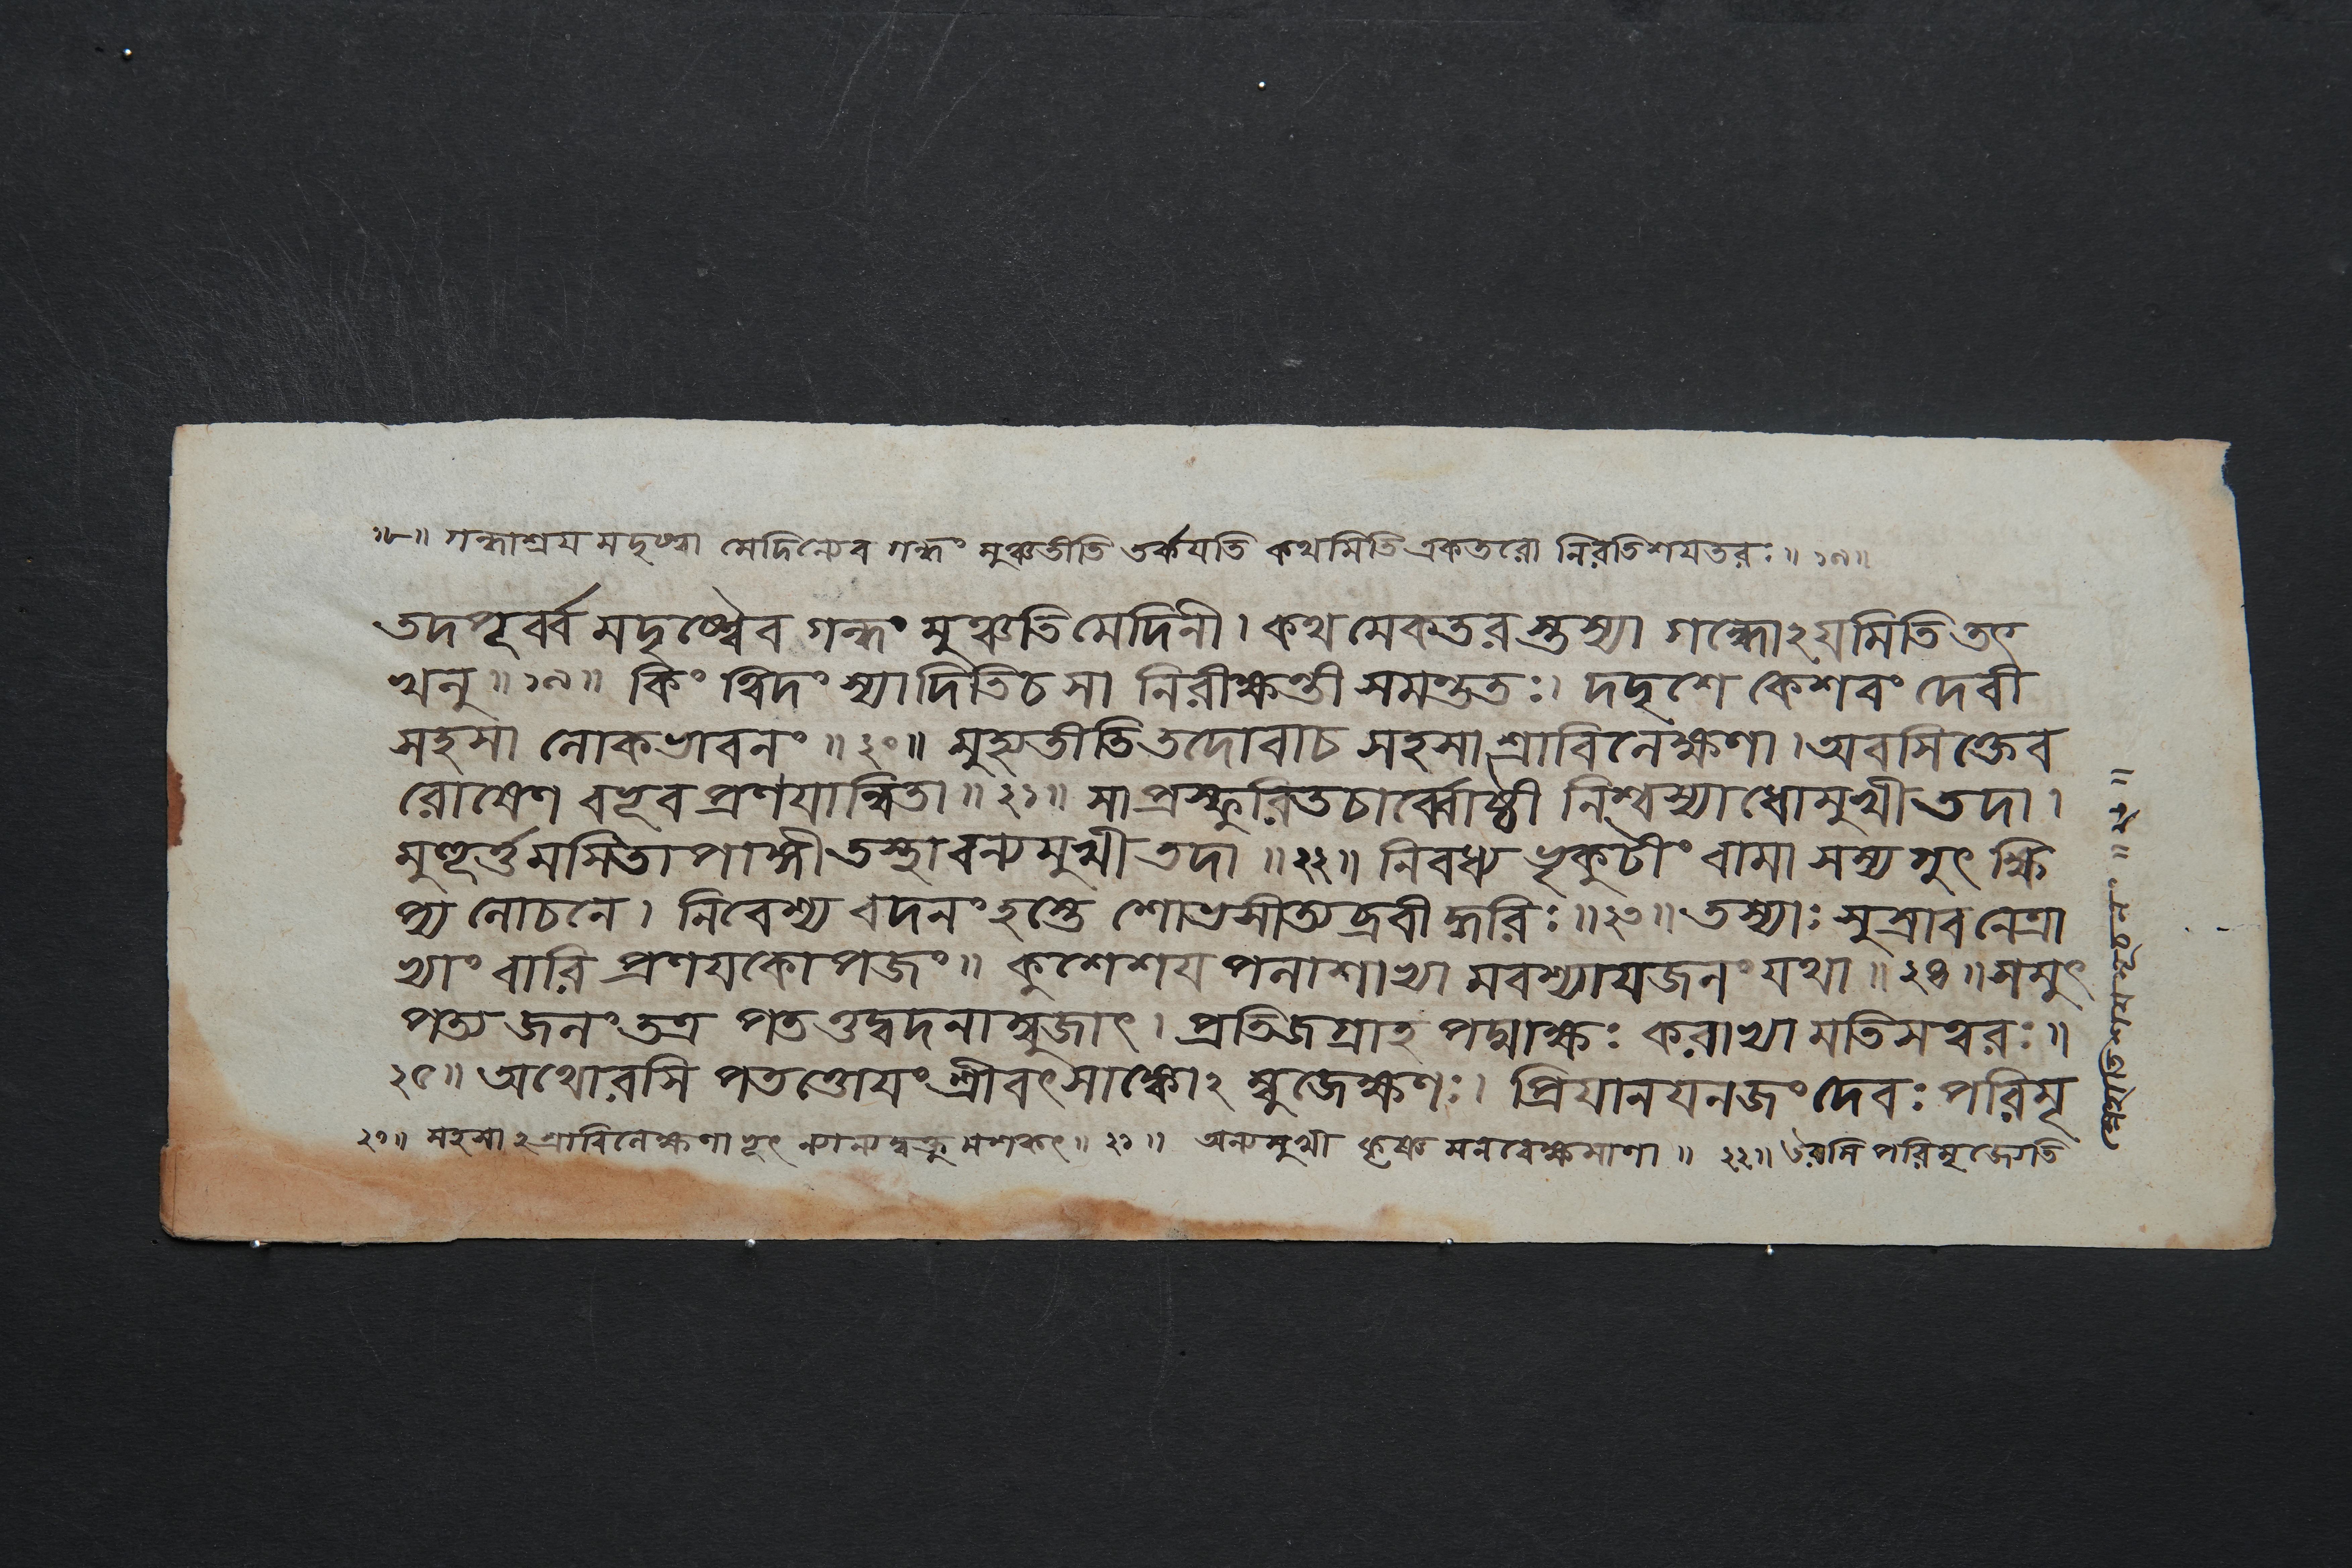 ১৮॥ গন্ধাশ্রয় মদৃষ্ট্বা মেদিন্যেব গন্ধং মুঞ্চতীতি তর্কযতি কথমিতি একতরো নিরতিশযতরঃ॥ ১৯॥
তদপূর্ব্ব মদৃষ্ট্বৈব গন্ধং মুঞ্চতি মেদিনী। কথ মেকতর স্তস্যা গন্ধোঽযমিতি তৎ
খলু॥ ১৯॥ কিং ন্বিদং স্যাদিতি চ সা নিরীক্ষন্তী সমন্ততঃ। দদৃশে কেশবং দেবী
সহসা লোকভাবনং॥ ২০॥ মুহ্যতীতি তদোবাচ সহসাশ্রাবিলেক্ষণা। অবসিক্তেব
রোষেণ বভূব প্রণযান্বিতা॥ ২১॥ সা প্রস্ফুরিতচার্ব্বোষ্ঠী নিশ্বস্যাধোমুখী তদা।
মুহূর্ত্তমসিতাপাঙ্গী তস্থাবন্যমুখী তদা॥ ২২॥ নিবধ্য ভৃকুটীং বামা সম্য সুৎ ক্ষি
প্য লোচনে। নিবেশ্য বদনং হস্তে শোভসীত্যব্রবীদ্ধরিঃ॥ ২৩॥ তস্যাঃ সুস্রাব নেত্রা
ভ্যাং বারি প্রণযকোপজং॥ কুশেশয পলাশাভ্যা মবশ্যাযজলং যথা॥ ২৪॥ সমুৎ
পত্য জলং তত্র পতত্তদ্বদনাম্বুজাৎ। প্রতিজগ্রাহ পদ্মাক্ষঃ করাভ্যা মতিসত্বরঃ॥
২৫॥ অথোরসি পতত্তোযং শ্রীবৎসাঙ্কোঽ ম্বুজেক্ষণঃ। প্রিযানযনজং দেবঃ পরিমৃ
২০॥ সহসাঽশ্রাবিলেক্ষণা ॥ ২১॥ অন্যমুখী কৃষ্ণ মনবেক্ষমাণা॥ ২২॥ উরসি পরিমৃজেগতি